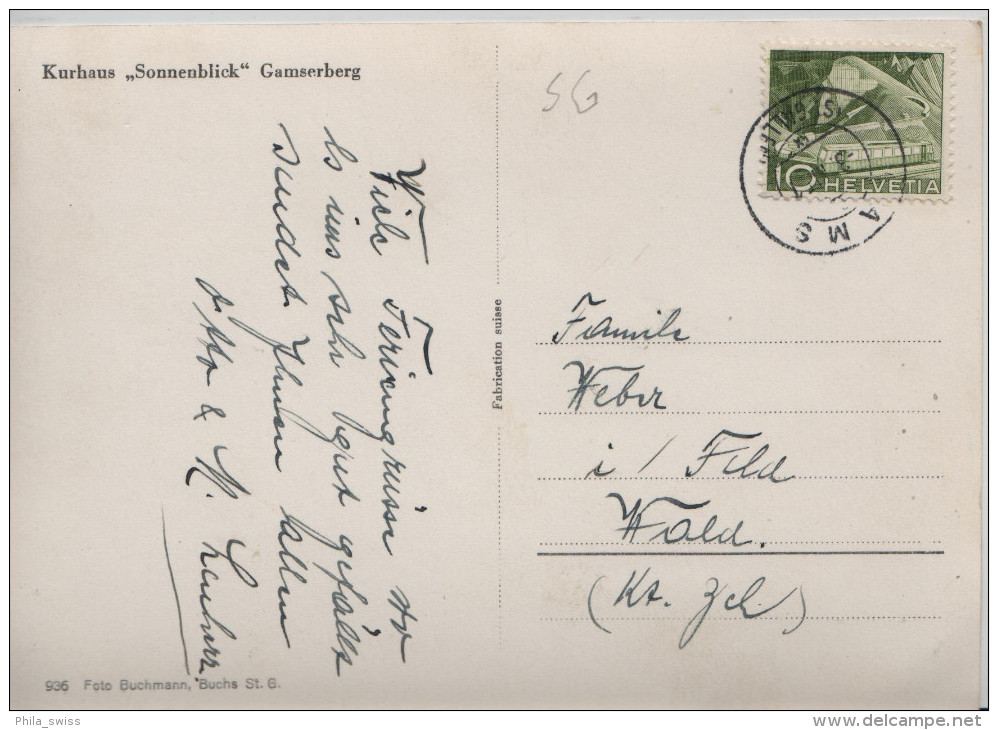 Kurhaus „Sonnenblick“ Gamserberg
SG
10 HELVETIA
GAMS
Viele Feriengrüsse wo
Es uns sehr gut gefällt
sendet Ihnen allen
Otto & M.
Fabrication suisse
Familie
Weber
i / Feld
Wald.
(Kt. Zch)
936 Foto Buchmann, Buchs St. G.
Phila_swiss
www.delcampe.net